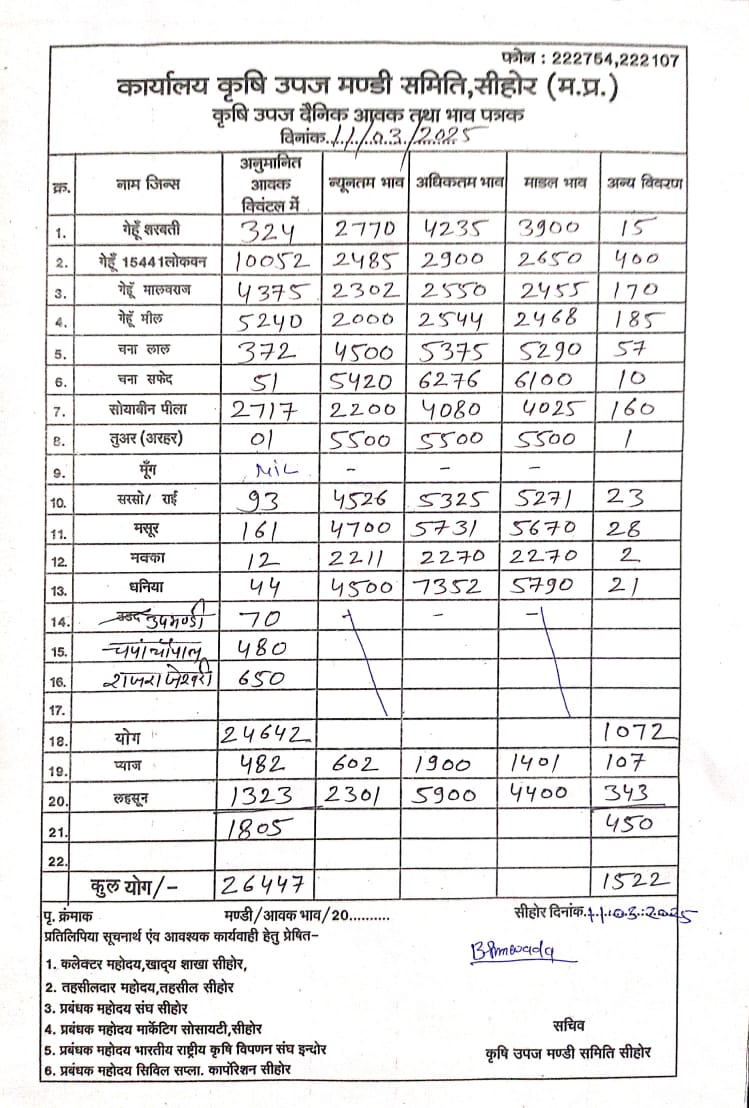 फोन : 222754,222107
कार्यालय कृषि उपज मण्डी समिति,सीहोर (म.प्र.)
कृषि उपज दैनिक आवक तथा भाव पत्रक
दिनांक.11/03/2025
क्र. नाम जिन्स अनुमानित आवक क्विंटल में न्यूनतम भाव अधिकतम भाव माडल भाव अन्य विवरण
1. गेहूँ शरबती 324 2770 4235 3900 15
2. गेहूँ 15441लोकवन 10052 2485 2900 2650 400
3. गेहूँ मालवराज 4375 2302 2550 2455 170
4. गेहूँ मील 5240 2000 2544 2468 185
5. चना लाल 372 4500 5375 5290 57
6. चना सफेद 51 5420 6276 6100 10
7. सोयाबीन पीला 2717 2200 4080 4025 160
8. तुअर (अरहर) 01 5500 5500 5500 1
9. मूँग NIL - - -
10. सरसो/ राई 93 4526 5325 5271 23
11. मसूर 161 4700 5731 5670 28
12. मक्का 12 2211 2270 2270 2
13. धनिया 44 4500 7352 5790 21
14. उडद उपमण्डी 70 - - -
15. 480
16. राजराजेश्वरी 650
17.
18. योग 24642 1072
19. प्याज 482 602 1900 1401 107
20. लहसून 1323 2301 5900 4400 343
21. 1805 450
22.
कुल योग/- 26447 1522
पृ. क्रंमाक मण्डी/आवक भाव/20.......... सीहोर दिनांक.11.03.2025
प्रतिलिपिया सूचनार्थ एंव आवश्यक कार्यवाही हेतु प्रेषित-
1. कलेक्टर महोदय,खाद्य शाखा सीहोर,
2. तहसीलदार महोदय,तहसील सीहोर
3. प्रबंधक महोदय संघ सीहोर
4. प्रबंधक महोदय मार्केटिग सोसायटी,सीहोर
5. प्रबंधक महोदय भारतीय राष्ट्रीय कृषि विपणन संघ इन्दोर
6. प्रबंधक महोदय सिविल सप्ला. कार्पोरेशन सीहोर
सचिव
कृषि उपज मण्डी समिति सीहोर